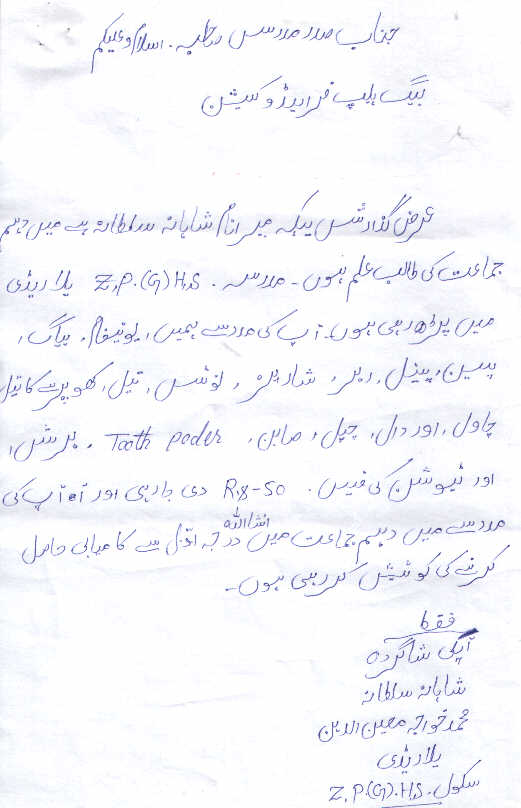 جناب صدر مدرسس صاحب. اسلام وعلیکم
بیگ ہلپ فراینڈ وکیشن
عرض گذارشس یہکہ میرا نام شاہانہ سلطانہ ہے میں دہم
جماعت کی طالب علم ہوں۔ مدرسہ. Z.P.(G)H.S یلاریڈی
میں پڑھ رہی ہوں۔ آپ کی مدد سے ہمیں، یونیفام، بیاگ،
پسین، پینسل، ربر، شارپنر، نوٹس، تیل، کھوپرے کا تیل
چاول، اور دال، چپل، صابن، Tooth poder، برش،
اور ٹیوشن کی فیس. R.s-50 دی جارہی اور آپ کی
مدد سے میں دہم جماعت میں انشااللہ درجہ اوّل سے کامیابی حاصل
کرنے کی کوشیش کررہی ہوں۔
فقط
آپکی شاگردہ
شاہانہ سلطانہ
محمد خواجہ معین الدین
یلاریڈی
سکول. Z.P.(G).H.S